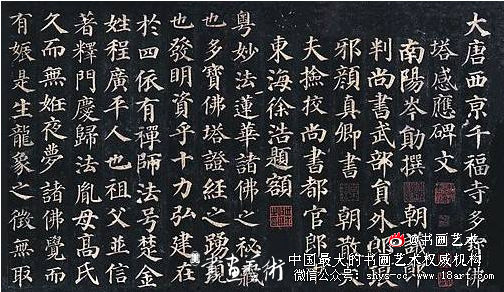 大唐西京千福寺多寶佛
塔感應碑文
南陽岑勛撰 朝議郎
判尚書武部員外郎琅
邪顏真卿書 朝散大
夫撿挍尚書都官郎中
東海徐浩題額
粵妙法蓮華諸佛之秘藏
也多寶佛塔證經之踴現
也發明資乎十力弘建在
於四依有禪師法号楚金
姓程廣平人也祖父並信
著釋門慶歸法胤母高氏
久而無姙夜夢諸佛覺而
有娠是生龍象之徵無取
书画艺术
中国最大的书画艺术权威机构
微信公众号：shyscc www.1168.tv